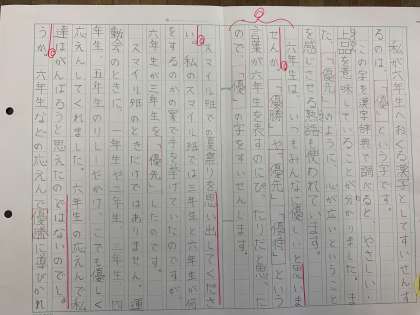 私が六年生へおくる漢字としてすいせんす
るのは、「優」という字です。
この字を漢字辞典で調べると、やさしい・
上品を意味していることが分かりました。ま
た、「優先」のように、心が広いということ
を感じさせる熟語も使われています。
六年生は、いつもみんな優しいと思いま
せんか。「優勝」や「優先」「優待」という
言葉が六年生を表すのにぴったりだと思った
ので、「優」の字をすいせんします。
スマイル班での夏祭りを思い出してくださ
い。私のスマイル班では三年生と六年生が何
をするのかの案で手を挙げていたのですが、
六年生が三年生を「優先」したのです。
スマイル班のときだけではありません。運
動会のときに、一年生や二年生、三年生、四
年生、五年生のリレーやかけっこでも優しく
応えんしてくれました。六年生の応えんで私
達はがんばろうと思えたのではないのでしょ
うか。六年生などの応えんで優勝に導びかれ